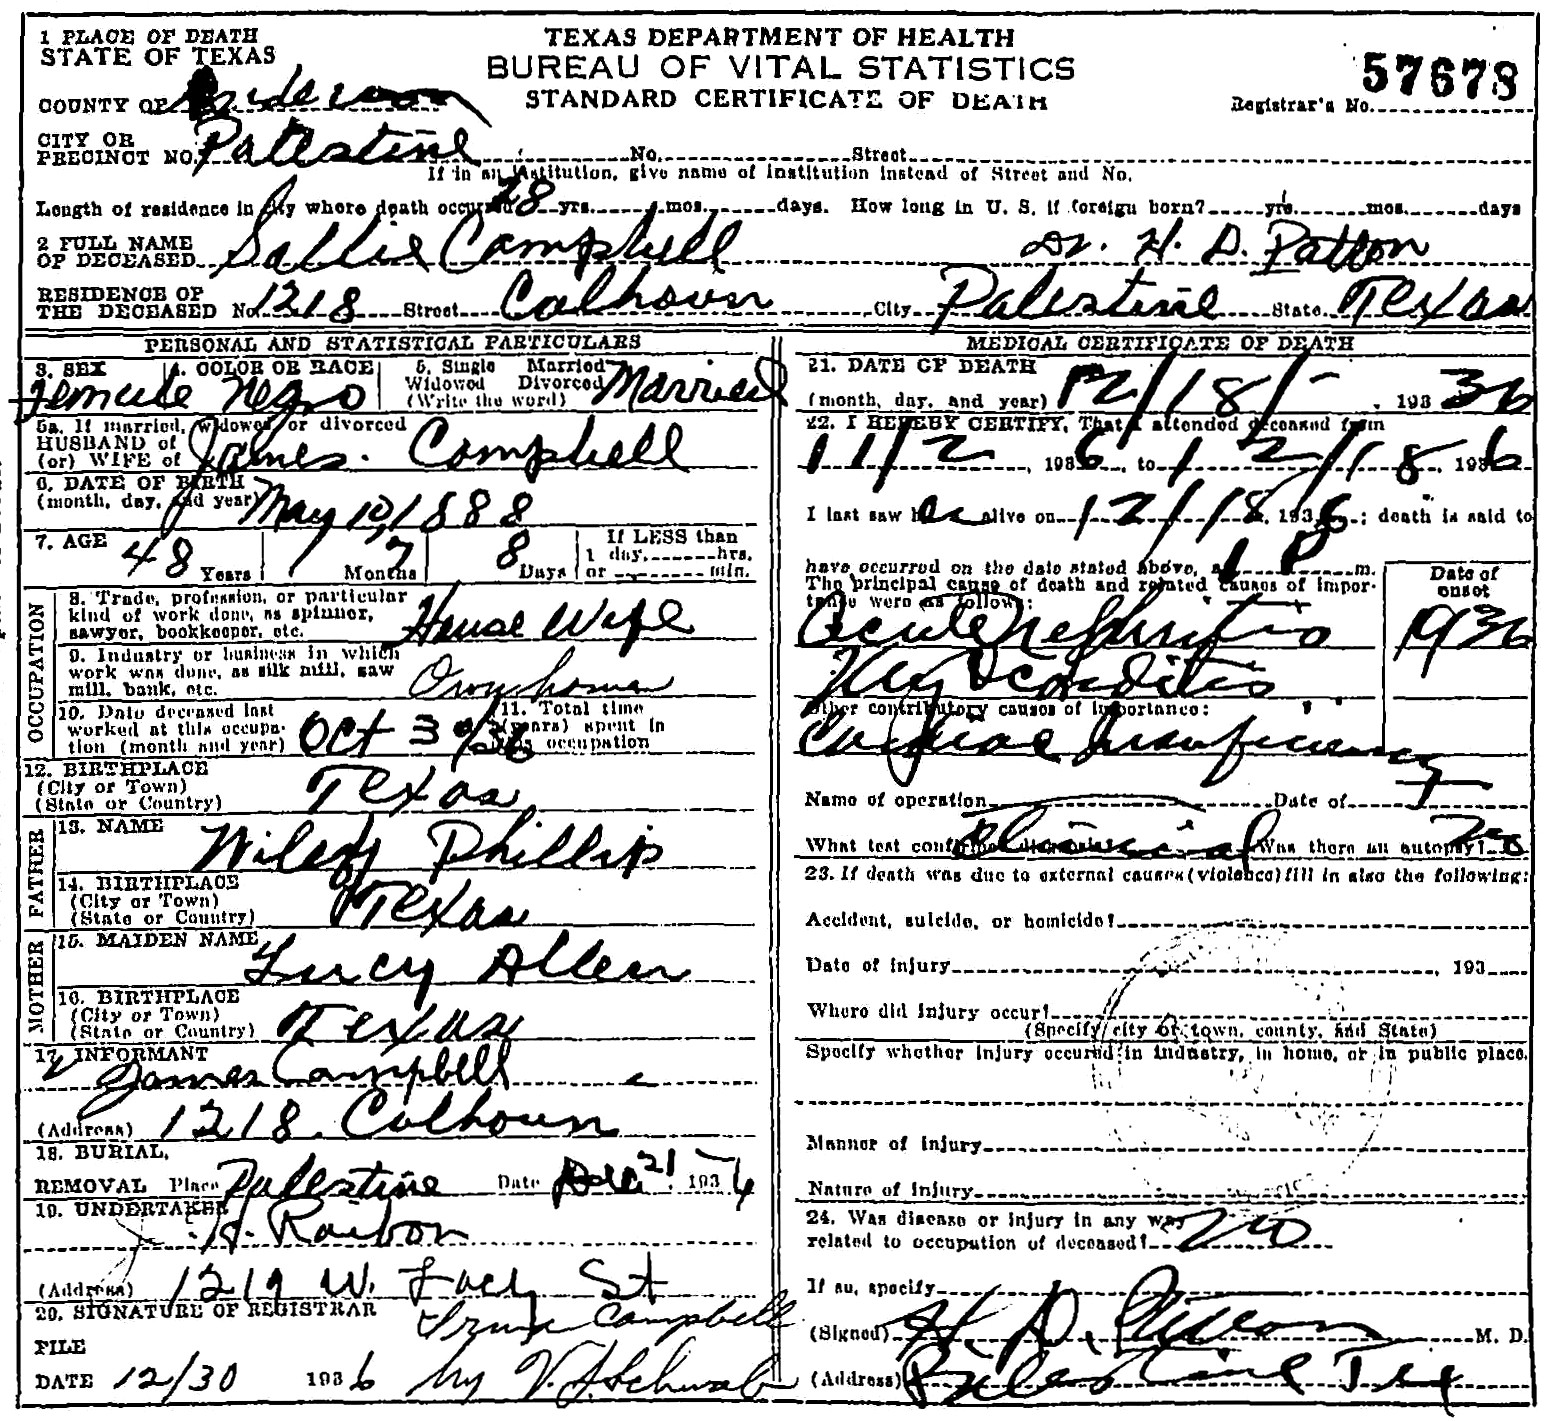 1 PLACE OF DEATH
STATE OF TEXAS
TEXAS DEPARTMENT OF HEALTH
BUREAU OF VITAL STATISTICS
STANDARD CERTIFICATE OF DEATH
57678
Registrar's No.
COUNTY OF Anderson
CITY OR
PRECINCT NO. Palestine No. Street
If in an institution, give name of institution instead of Street and No.
Length of residence in city where death occurred 28 yrs. mos. days. How long in U. S. if foreign born? yrs. mos. days
2 FULL NAME
OF DECEASED Sallie Campbell Dr. H. D. Patton
RESIDENCE OF
THE DECEASED No. 1218 Street Calhoun City Palestine State Texas
PERSONAL AND STATISTICAL PARTICULARS
3. SEX 4. COLOR OR RACE 5. Single Married
Widowed Divorced
(Write the word) Married
Female Negro
5a. If married, widowed or divorced
HUSBAND of
(or) WIFE of James Campbell
6. DATE OF BIRTH
(month, day, and year) May 10, 1888
7. AGE 48 Years 7 Months 8 Days If LESS than
1 day, hrs.
or min.
OCCUPATION
8. Trade, profession, or particular
kind of work done, as spinner,
sawyer, bookkeeper, etc. House Wife
9. Industry or business in which
work was done, as silk mill, saw
mill, bank, etc. Own home
10. Date deceased last
worked at this occupa-
tion (month and year) Oct 30/36
11. Total time
(years) spent in
occupation
12. BIRTHPLACE
(City or Town)
(State or Country) Texas
FATHER
13. NAME Wiley Phillip
14. BIRTHPLACE
(City or Town)
(State or Country) Texas
MOTHER
15. MAIDEN NAME Lucy Allen
16. BIRTHPLACE
(City or Town)
(State or Country) Texas
17 INFORMANT
James Campbell
(Address) 1218 Calhoun
18. BURIAL,
REMOVAL Place Palestine Date Dec 21 1936
19. UNDERTAKER
H. Raibon
(Address) 1219 W. Lacy St
20. SIGNATURE OF REGISTRAR
Campbell
FILE
DATE 12/30 1936 by V. J. Schwab
MEDICAL CERTIFICATE OF DEATH
21. DATE OF DEATH
(month, day, and year) 12/18/- , 193 36
22. I HEREBY CERTIFY, That I attended deceased from
11/2, 1936, to 12/18, 1936
I last saw her alive on 12/18, 1936; death is said to
have occurred on the date stated above, at 1 P m.
The principal cause of death and related causes of impor-
tance were as follows:
Date of
onset
Acute Nephritis 1936
Myocarditis
Other contributory causes of importance:
Cardiac Insufficiency
Name of operation Date of
What test confirmed diagnosis? Clinical Was there an autopsy? No
23. If death was due to external causes (violence) fill in also the following:
Accident, suicide, or homicide?
Date of injury , 193
Where did injury occur?
(Specify city or town, county, and State)
Specify whether injury occured in industry, in home, or in public place.
Manner of injury
Nature of injury
24. Was disease or injury in any way
related to occupation of deceased? No
If so, specify
(Signed) H. D. Patton M. D.
(Address) Palestine Tex